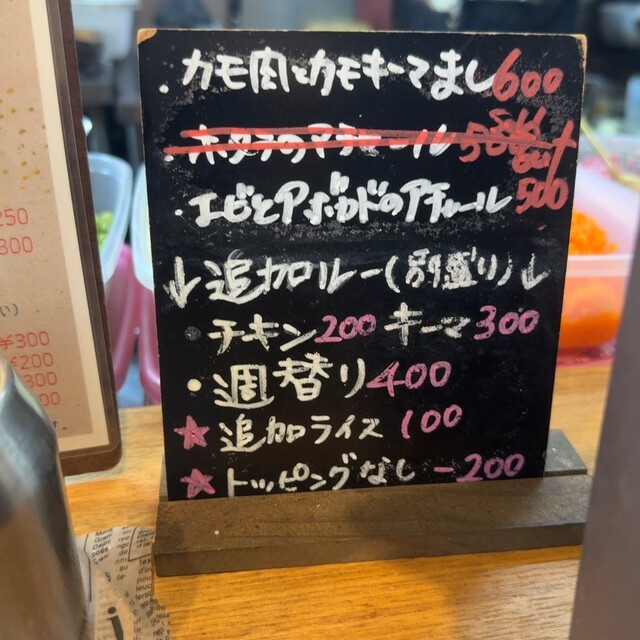 ・カモ肉とカモキーマまし 600
・ホタテのアチャール 500 Sold out
・エビとアボカドのアチャール 500
↓追加ルー(別盛り)↓
・チキン200 キーマ300
・週替り400
★追加ライス 100
★トッピングなし -200
250
300
¥300
¥200
300